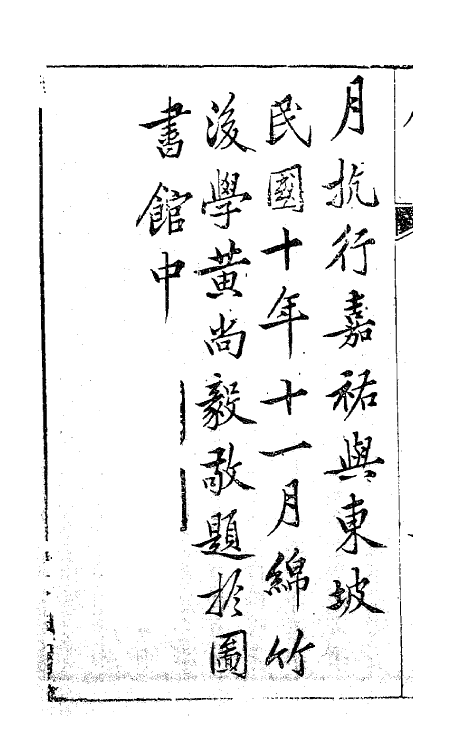 月抗行嘉祐與東坡
民國十年十一月綿竹
後學黃尚毅敬題於圖
書館中